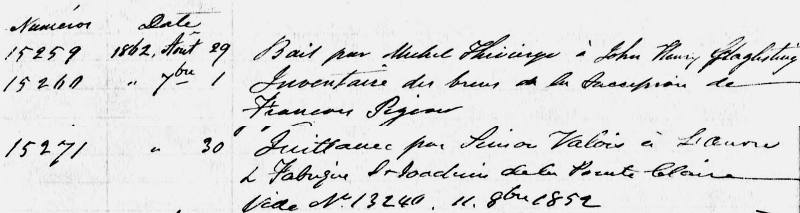 Numéros Date
15259 1862. Août 29 Bail par Michel Thivierge à John Henry
15260 " 7bre 1 Inventaire des biens de la succession de
François Pigeon
15271 " " 30 Quittance par Simon Valois à L'œuvre
& Fabrique St Joachim de la Pointe Claire
Vide No. 13240. 11. 8bre 1852